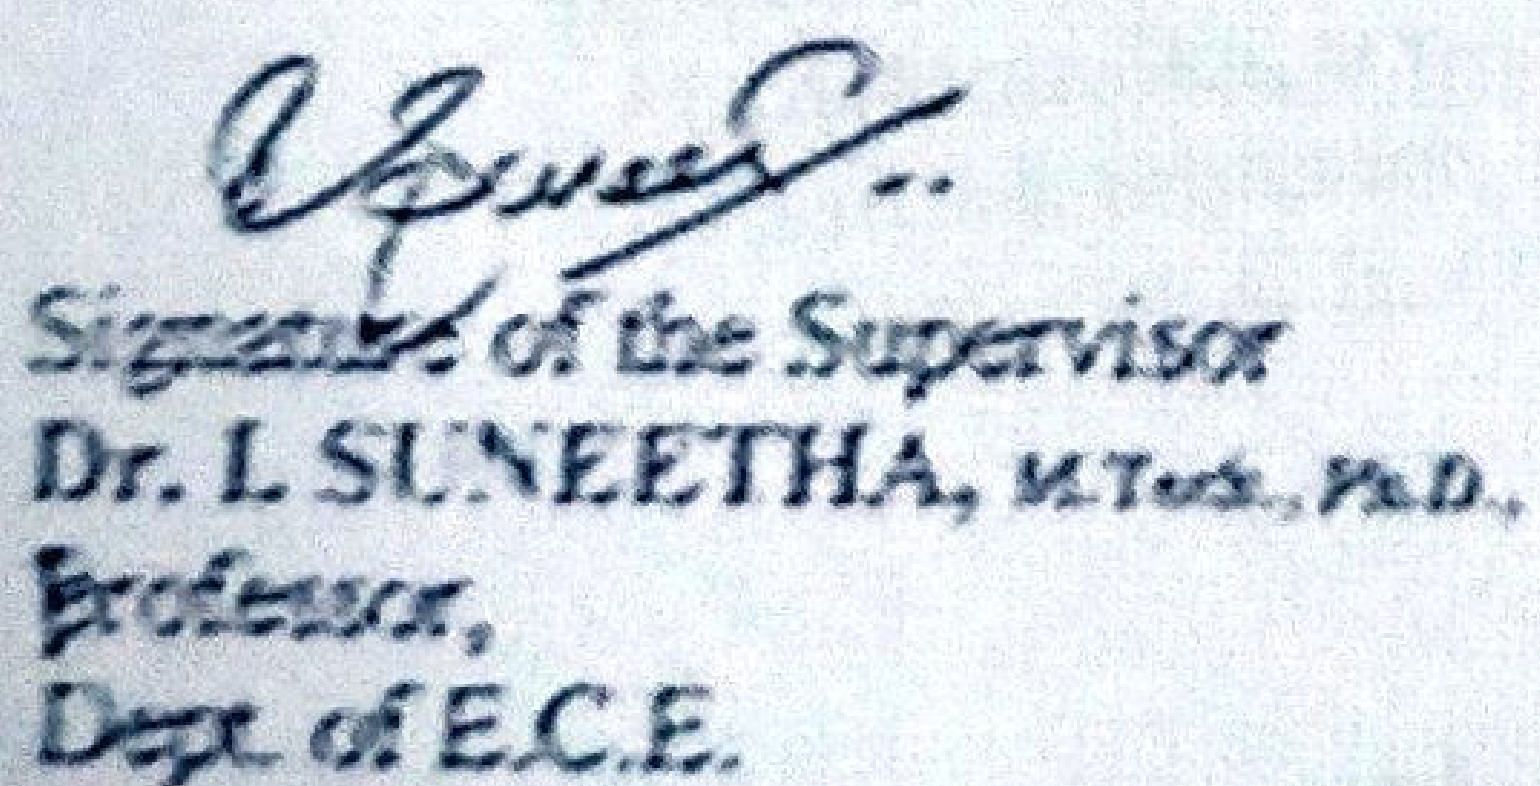 Signature of the Supervisor
Dr. L SUNEETHA, M.Tech., Ph.D.,
Professor,
Dept of E.C.E.